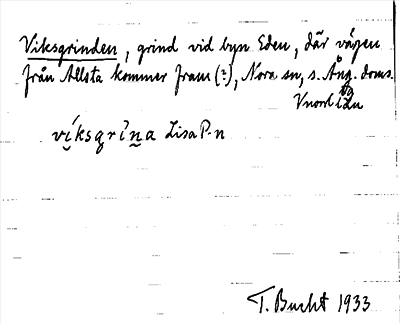 Viksgrinden, grind vid byn Eden, där vägen
från Allsta kommer fram (?), Nora sn, s. Ång. doms.
Vnorrl
víksgrína Lisa P-n
T. Bucht 1933